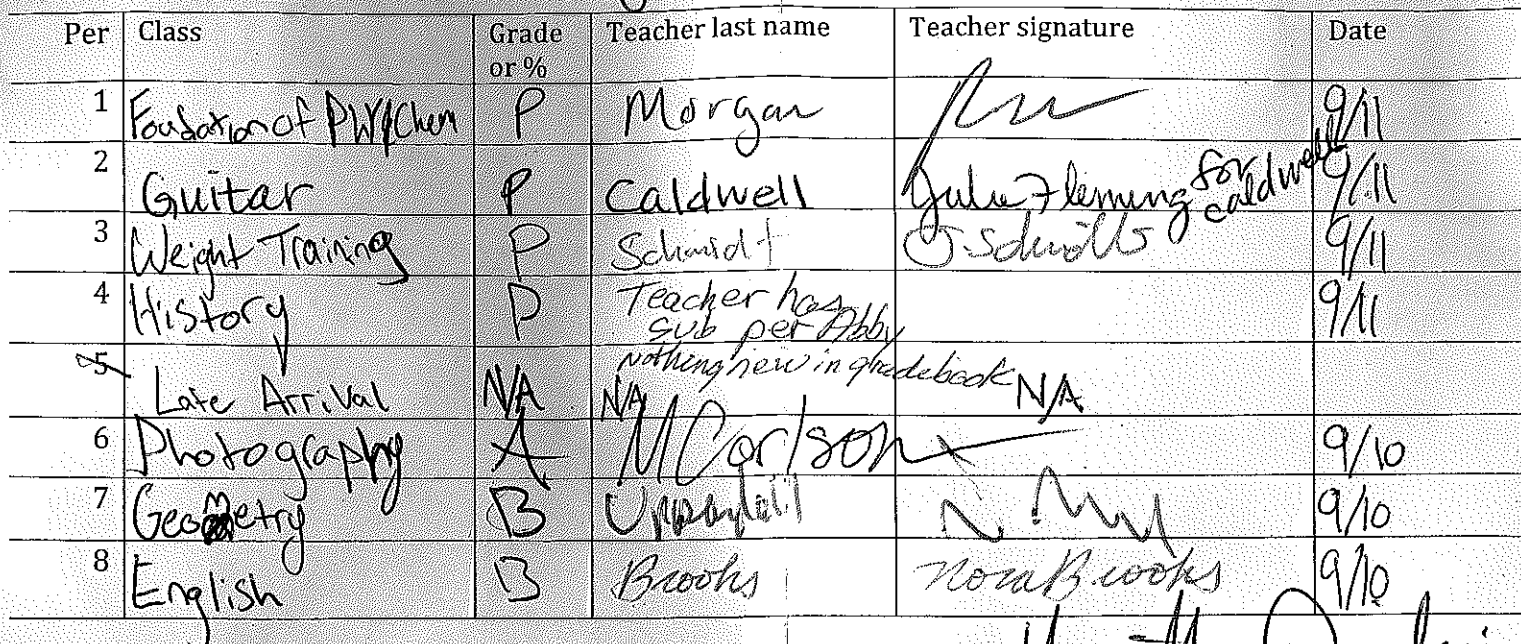 Per Class Grade or % Teacher last name Teacher signature Date
1 Foudation of PHY/Chem P Morgan 9/11
2 Guitar P Caldwell Julie Fleming for Caldwell 9/11
3 Weight Training P Schmidt J. Schmidt 9/11
4 History P Teacher has sub per Abby 9/11
nothing new in gradebook
5 Late Arrival N/A N/A N/A
6 Photography A M Carlson 9/10
7 Geometry B 9/10
8 English B Brooks Nora Brooks 9/10